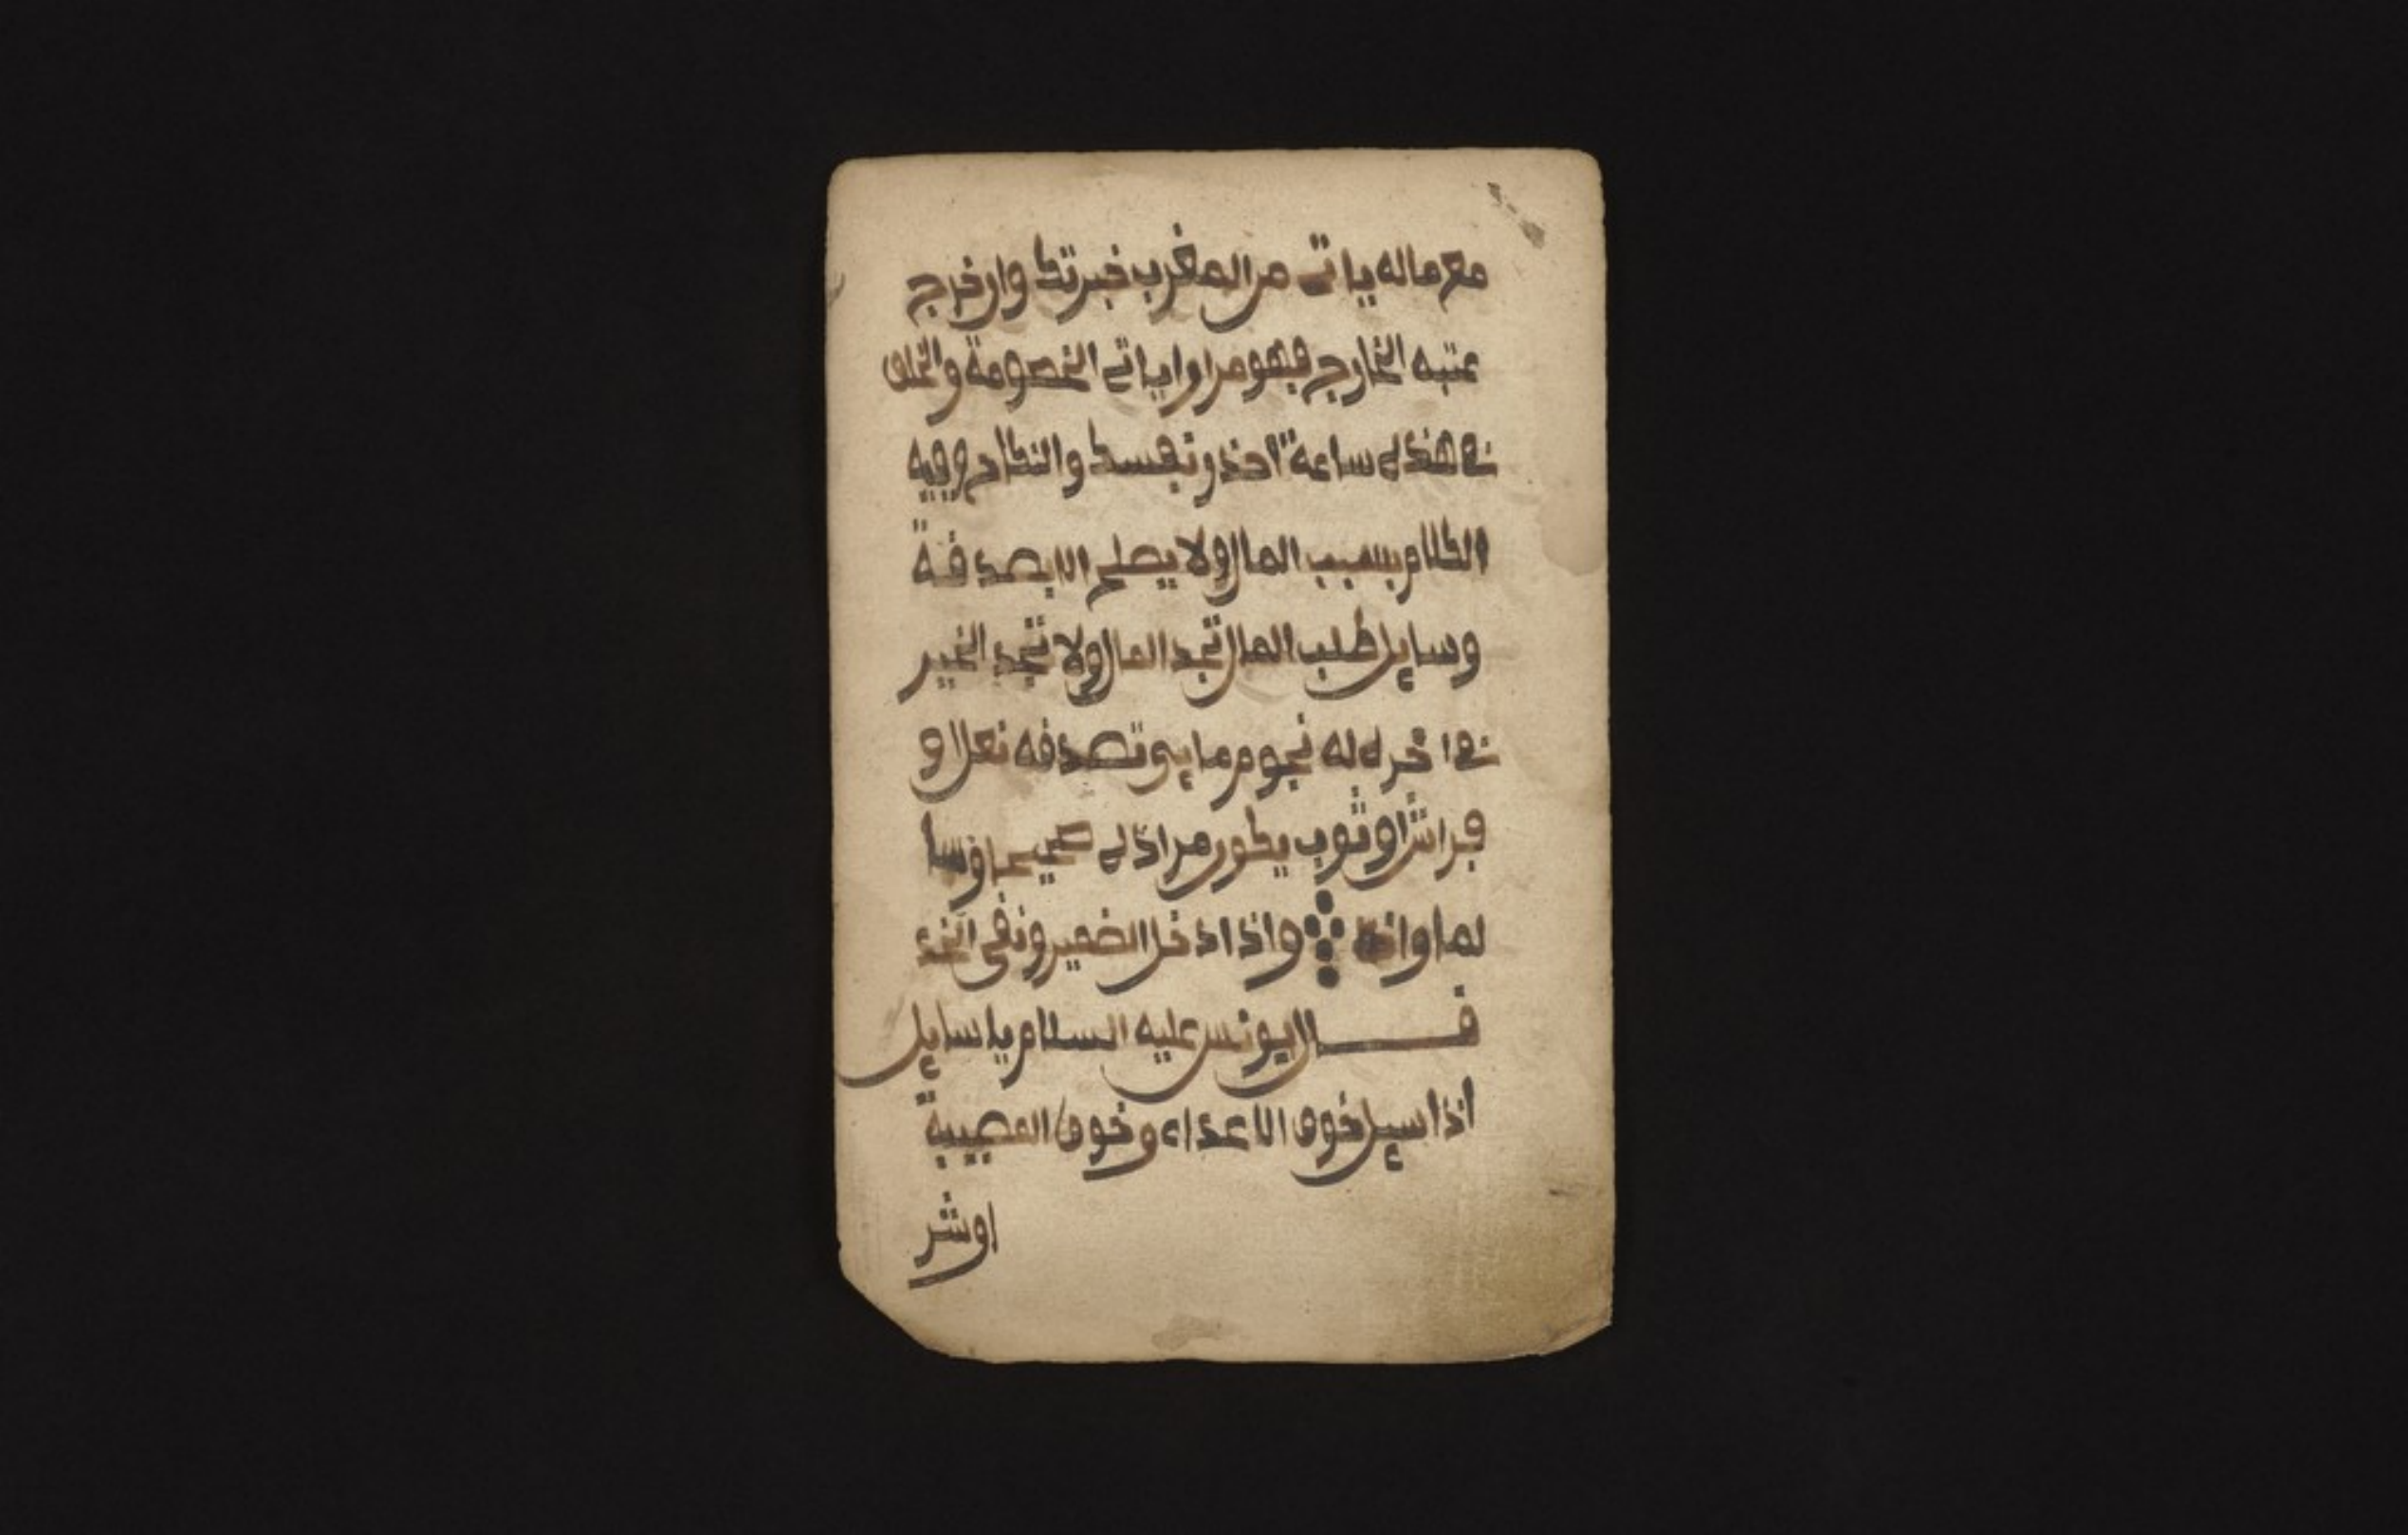 مع ماله ياتى من المغرب خبر تك وان خرج
عتبه الخارج فهو من اول ياتى الخصومة والخلف
فى هذل ساعة احذر نفسك والنكاح وفيه
الكلام بسبب المال ولا يصلح الا بصدقة
وسايل طلب المال تجد المال ولا تجد الخير
فى اخر له نجوم تصدقه نعلا و
فراشا وثوب يكون مراذل صحيحا وسا
لما واذا واذا ادخل الضمير ونقى الخد
قال يونس عليه السلام يا سايل
اذا سيل خوف الاعداء وخوف المصيبة
اوشر